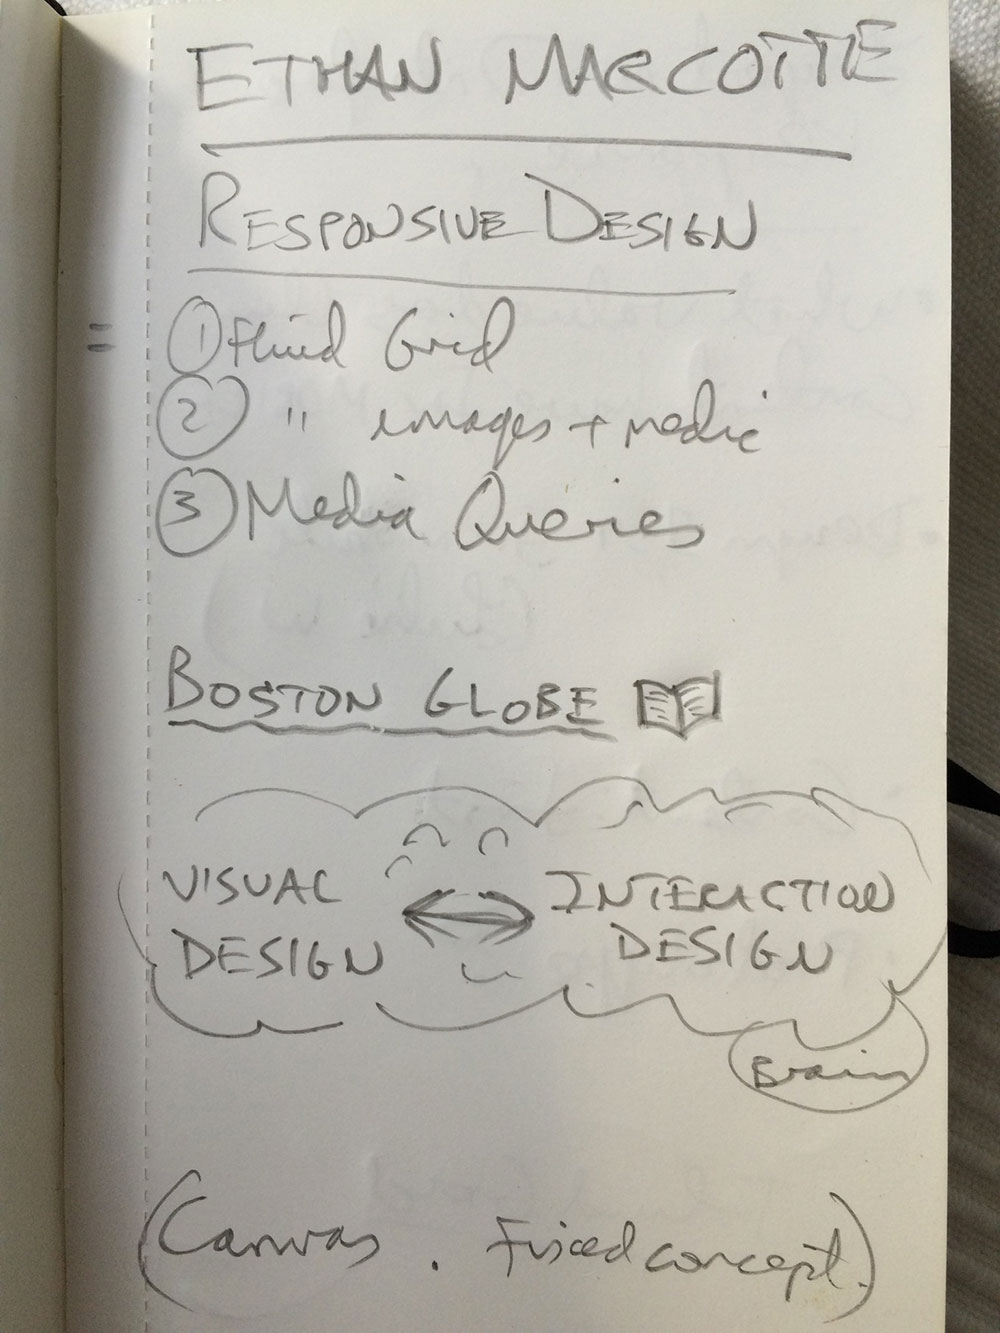 ETHAN MARCOTTE
RESPONSIVE DESIGN
= ① Fluid Grid
② " images + media
③ Media Queries
BOSTON GLOBE
VISUAL DESIGN
INTERACTION DESIGN
Brain
(Canvas. Fixed concept.)